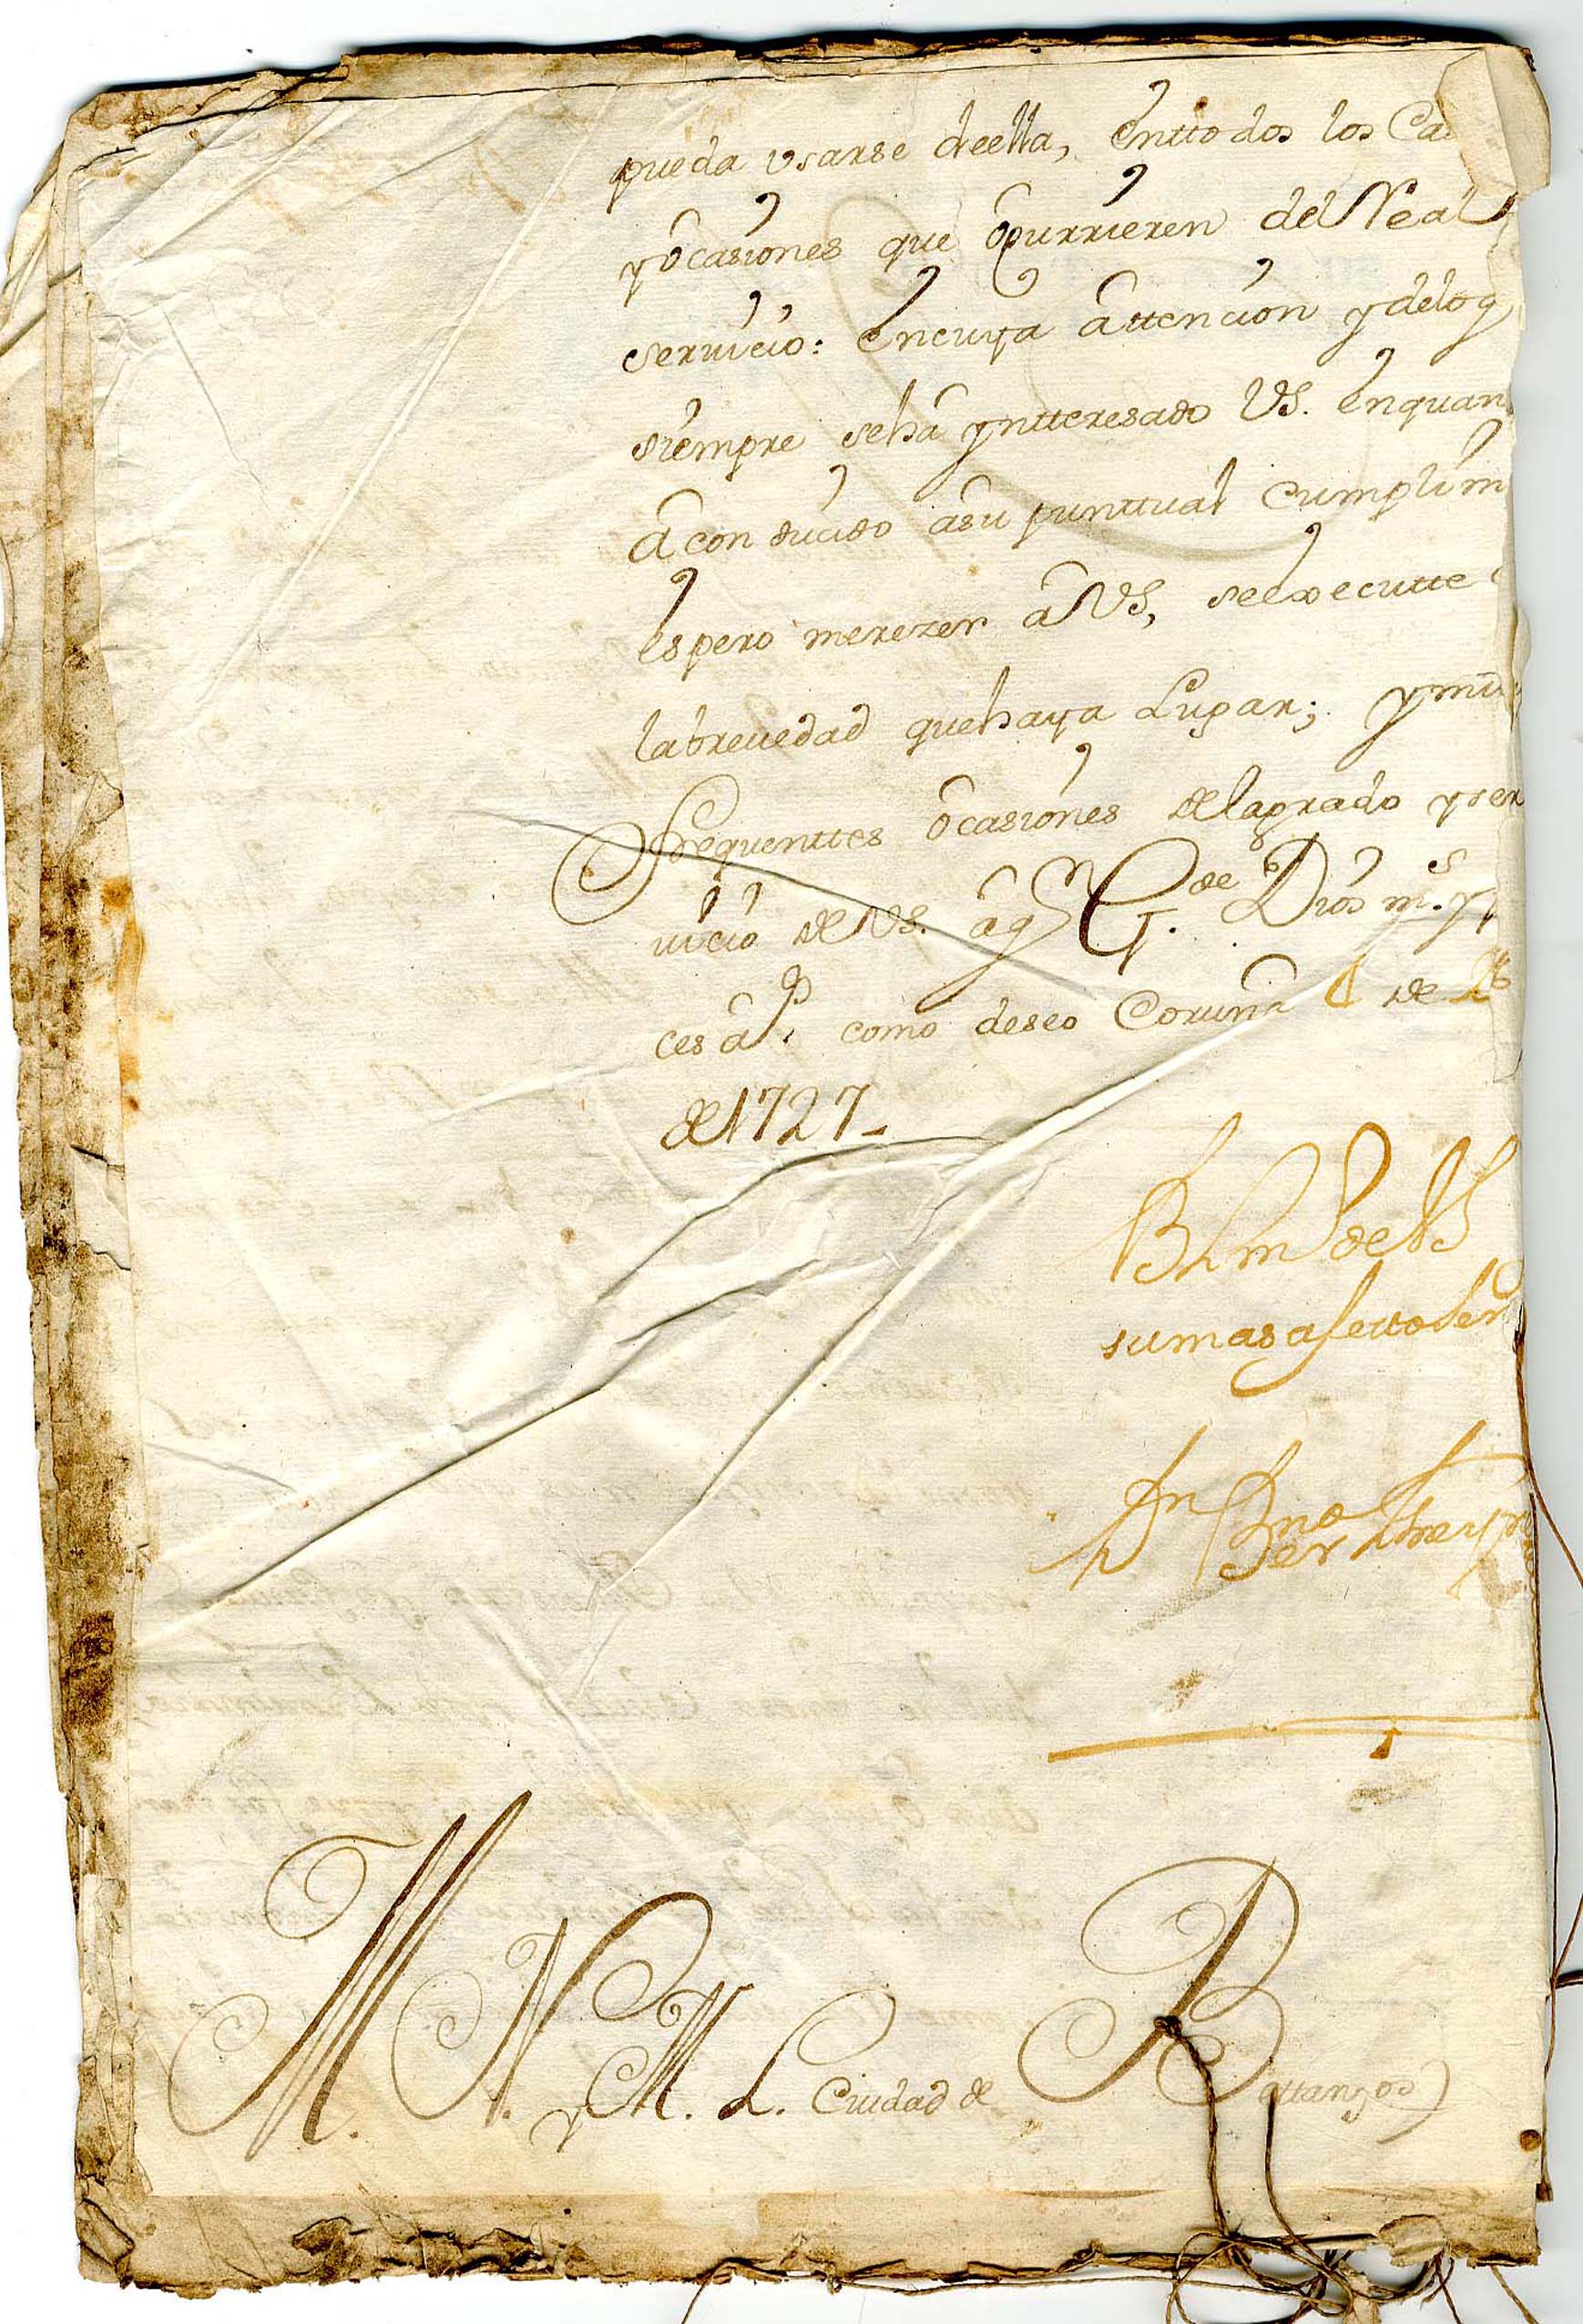 pueda vsarse deella, enttodos los Ca
y ocasiones que ocurrieren del Real
seruicio: encuya attencion y delo q
siempre seha yntteresado VS. enquan
a conducido asu punttual cumplim
espero merezer a VS, seexecutte
labreuedad quehaya Lugar; y mu
frequenttes ocasiones delagrado y ser
uicio de VS. a q G.de Dios m.s
ces a.s como deseo Coruña de
de 1727
BLm de VS
sumas afectto Ser
Dn
M. N. y M. L. Ciudad de Bettanzos